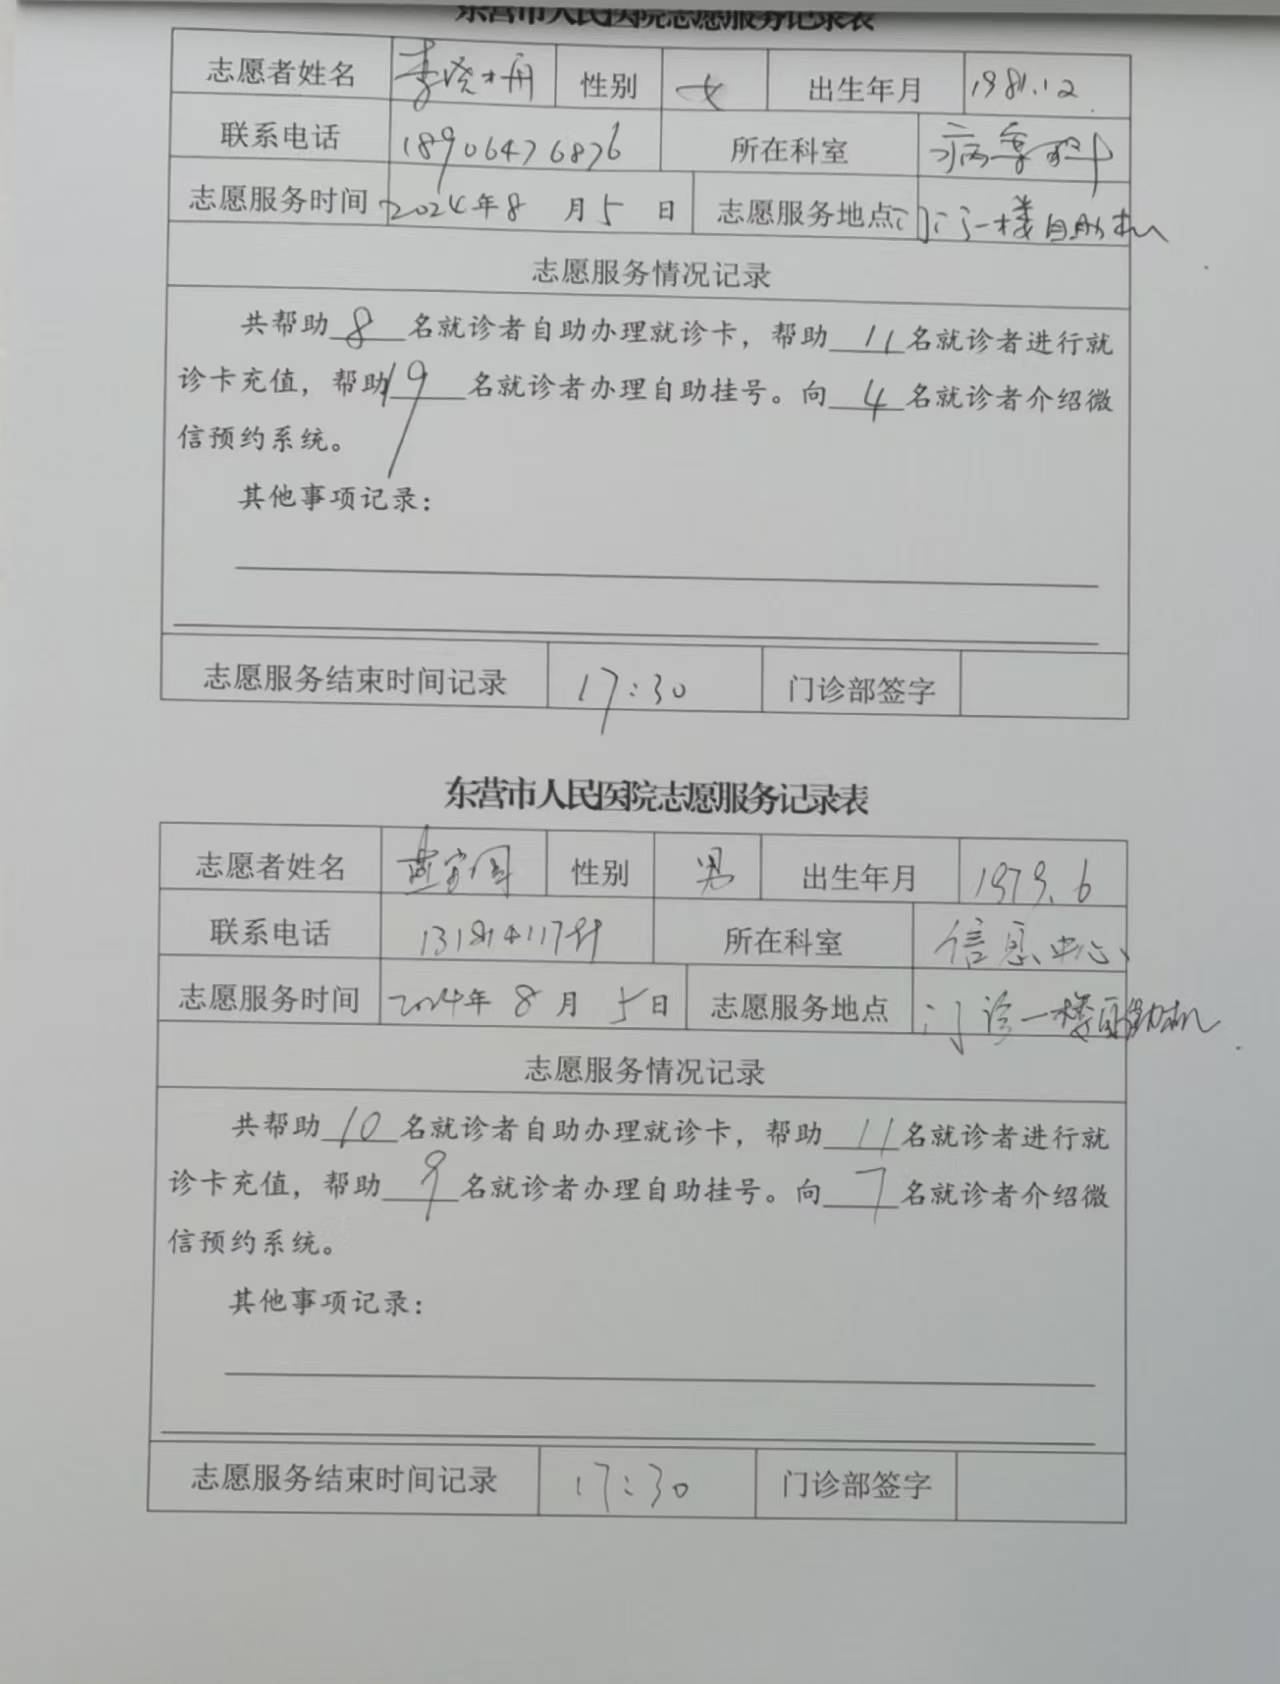 东营市人民医院志愿服务记录表
志愿者姓名 李晓册 性别 女 出生年月 1981.12
联系电话 18906476876 所在科室 病案科
志愿服务时间 2024年8月5日 志愿服务地点 门诊一楼自助机
志愿服务情况记录
共帮助8名就诊者自助办理就诊卡，帮助11名就诊者进行就
诊卡充值，帮助19名就诊者办理自助挂号。向4名就诊者介绍微
信预约系统。
其他事项记录：
志愿服务结束时间记录 17:30 门诊部签字
东营市人民医院志愿服务记录表
志愿者姓名 性别 男 出生年月 1979.6
联系电话 所在科室 信息中心
志愿服务时间 2024年8月5日 志愿服务地点 门诊一楼自助机
志愿服务情况记录
共帮助10名就诊者自助办理就诊卡，帮助11名就诊者进行就
诊卡充值，帮助9名就诊者办理自助挂号。向7名就诊者介绍微
信预约系统。
其他事项记录：
志愿服务结束时间记录 17:30 门诊部签字